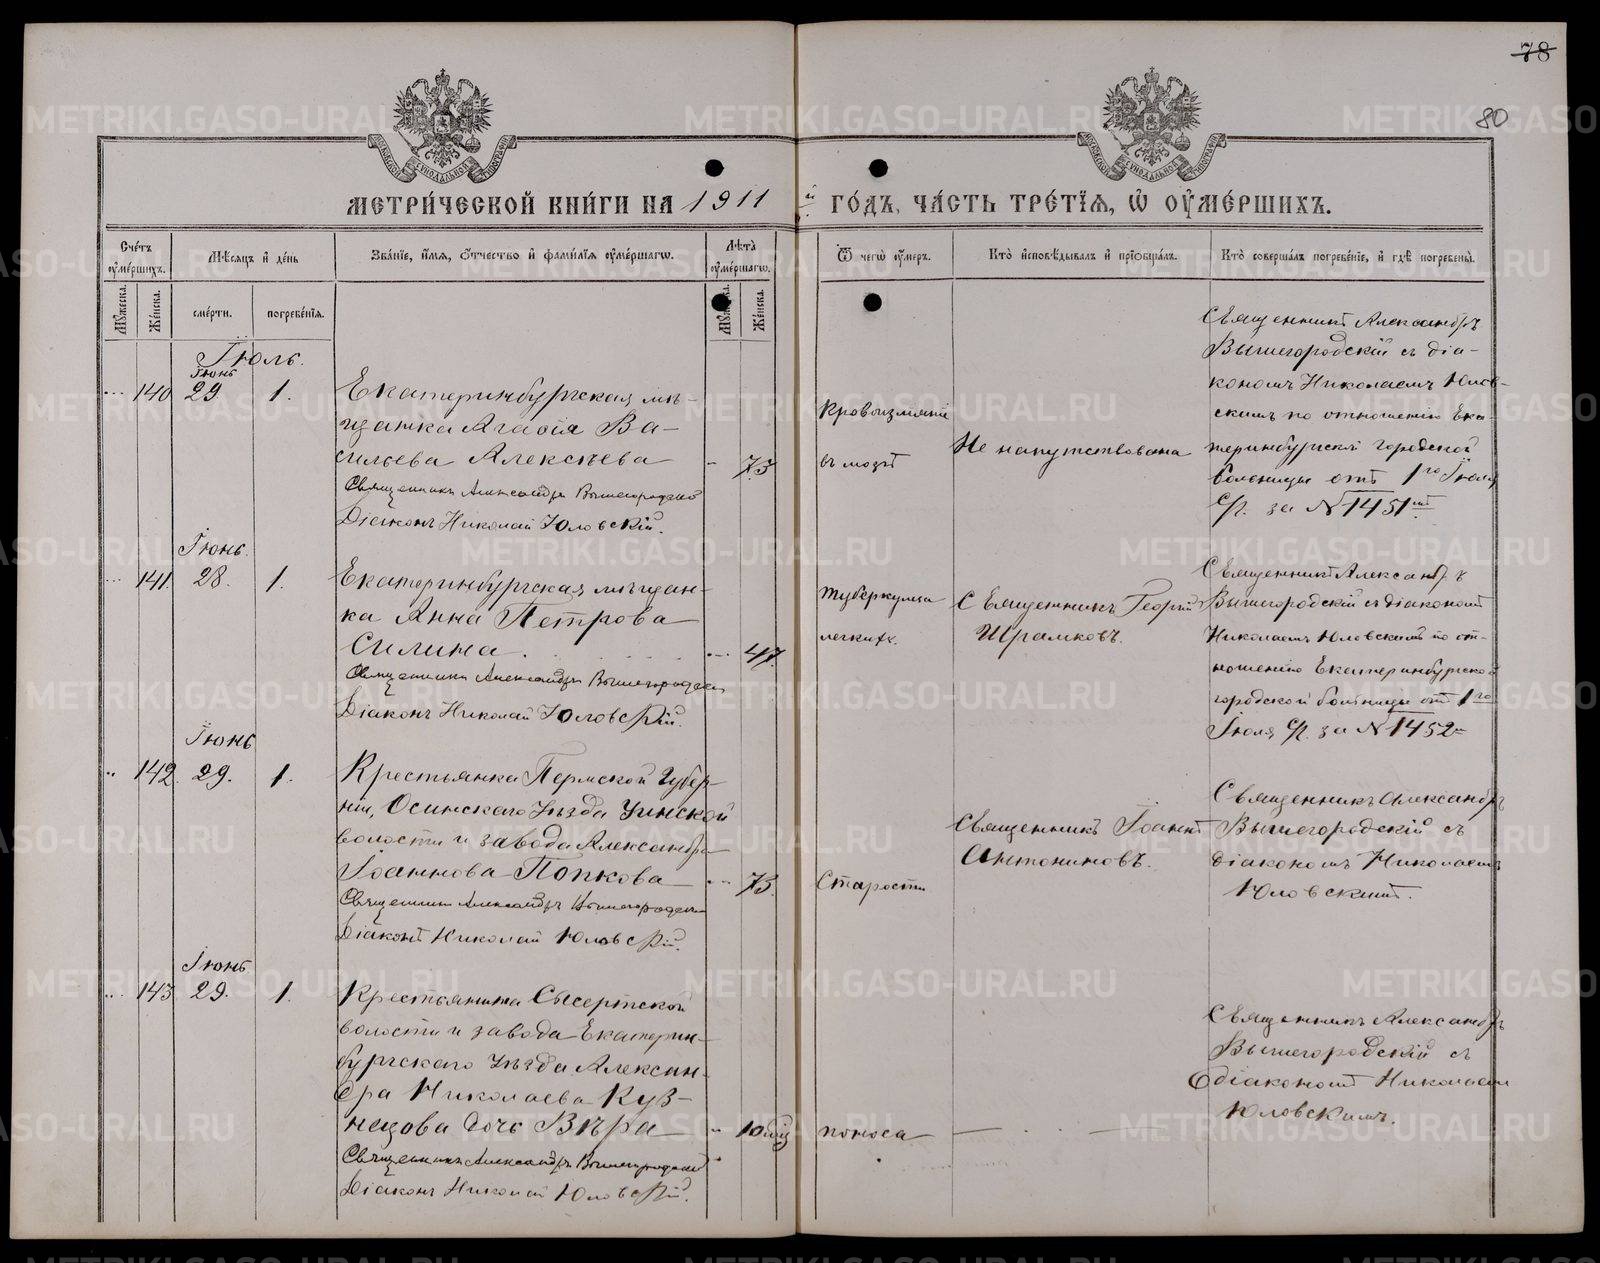 78
80
МЕТРИ́ЧЕСКОЙ КНИ́ГИ НА 1911 й ГО́ДЪ, ЧА́СТЬ ТРЕ́ТІѦ, Ѡ ОУМЕ́РШИХЪ.
Сче́тъ оуме́ршихъ.
Мѣ́сяцъ и де́нь
Зва́ніе, и́мя, о́тчество и фами́лія оуме́ршагѡ.
Лѣ́та оуме́ршагѡ.
Ѿ чегѡ̀ оу́меръ.
Кто̀ исповѣ́дывалъ и пріобща́лъ.
Кто̀ соверша́лъ погребе́ніе, и гдѣ̀ погребены̀.
Му́жеска.
Же́нска.
сме́рти.
погребе́нія.
Му́жеска.
Же́нска.
Іюль.
Іюнь
140 29 1.
Екатеринбургская мѣ-
щанка Агафія Ва-
сильева Алексѣева
73
Священникъ Александръ Вышегородскій
Діаконъ Николай Юловскій.
Кровоизліяніе
въ мозгъ
Не напутствована
Священникъ Александръ
Вышегородскій съ діа-
кономъ Николаемъ Юлов-
скимъ по отношенію Ека-
теринбургской городской
больницы отъ 1го Іюля
с/г. за № 1451мъ
Іюнь
141 28. 1.
Екатеринбургская мѣщан-
ка Анна Петрова
Силина
47.
Священникъ Александръ Вышегородскій
Діаконъ Николай Юловскій.
туберкулеза
легкихъ.
Священникъ Георгій
Шрамковъ.
Священникъ Александръ
Вышегородскій съ діакономъ
Николаемъ Юловскимъ по от-
ношенію Екатеринбургской
городской больницы отъ 1го
Іюля с/г. за № 1452
Іюнь
142. 29. 1.
Крестьянка Пермской губер-
ніи, Осинскаго Уѣзда Уинской
волости и завода Александра
Іоаннова Попкова
73.
Священникъ Александръ Вышегородскій
Діаконъ Николай Юловскій.
Старости
Священникъ Іоаннъ
Антониновъ.
Священникъ Александръ
Вышегородскій съ
діакономъ Николаемъ
Юловскимъ.
Іюнь
143 29. 1.
Крестьянина Сысертской
волости и завода Екатерин-
бургскаго Уѣзда Алексан-
дра Николаева Куз-
нецова дочь Вѣра
10 мѣс
Священникъ Александръ Вышегородскій
Діаконъ Николай Юловскій.
поноса
Священникъ Александръ
Вышегородскій съ
діакономъ Николаемъ
Юловскимъ.
METRIKI.GASO-URAL.RU